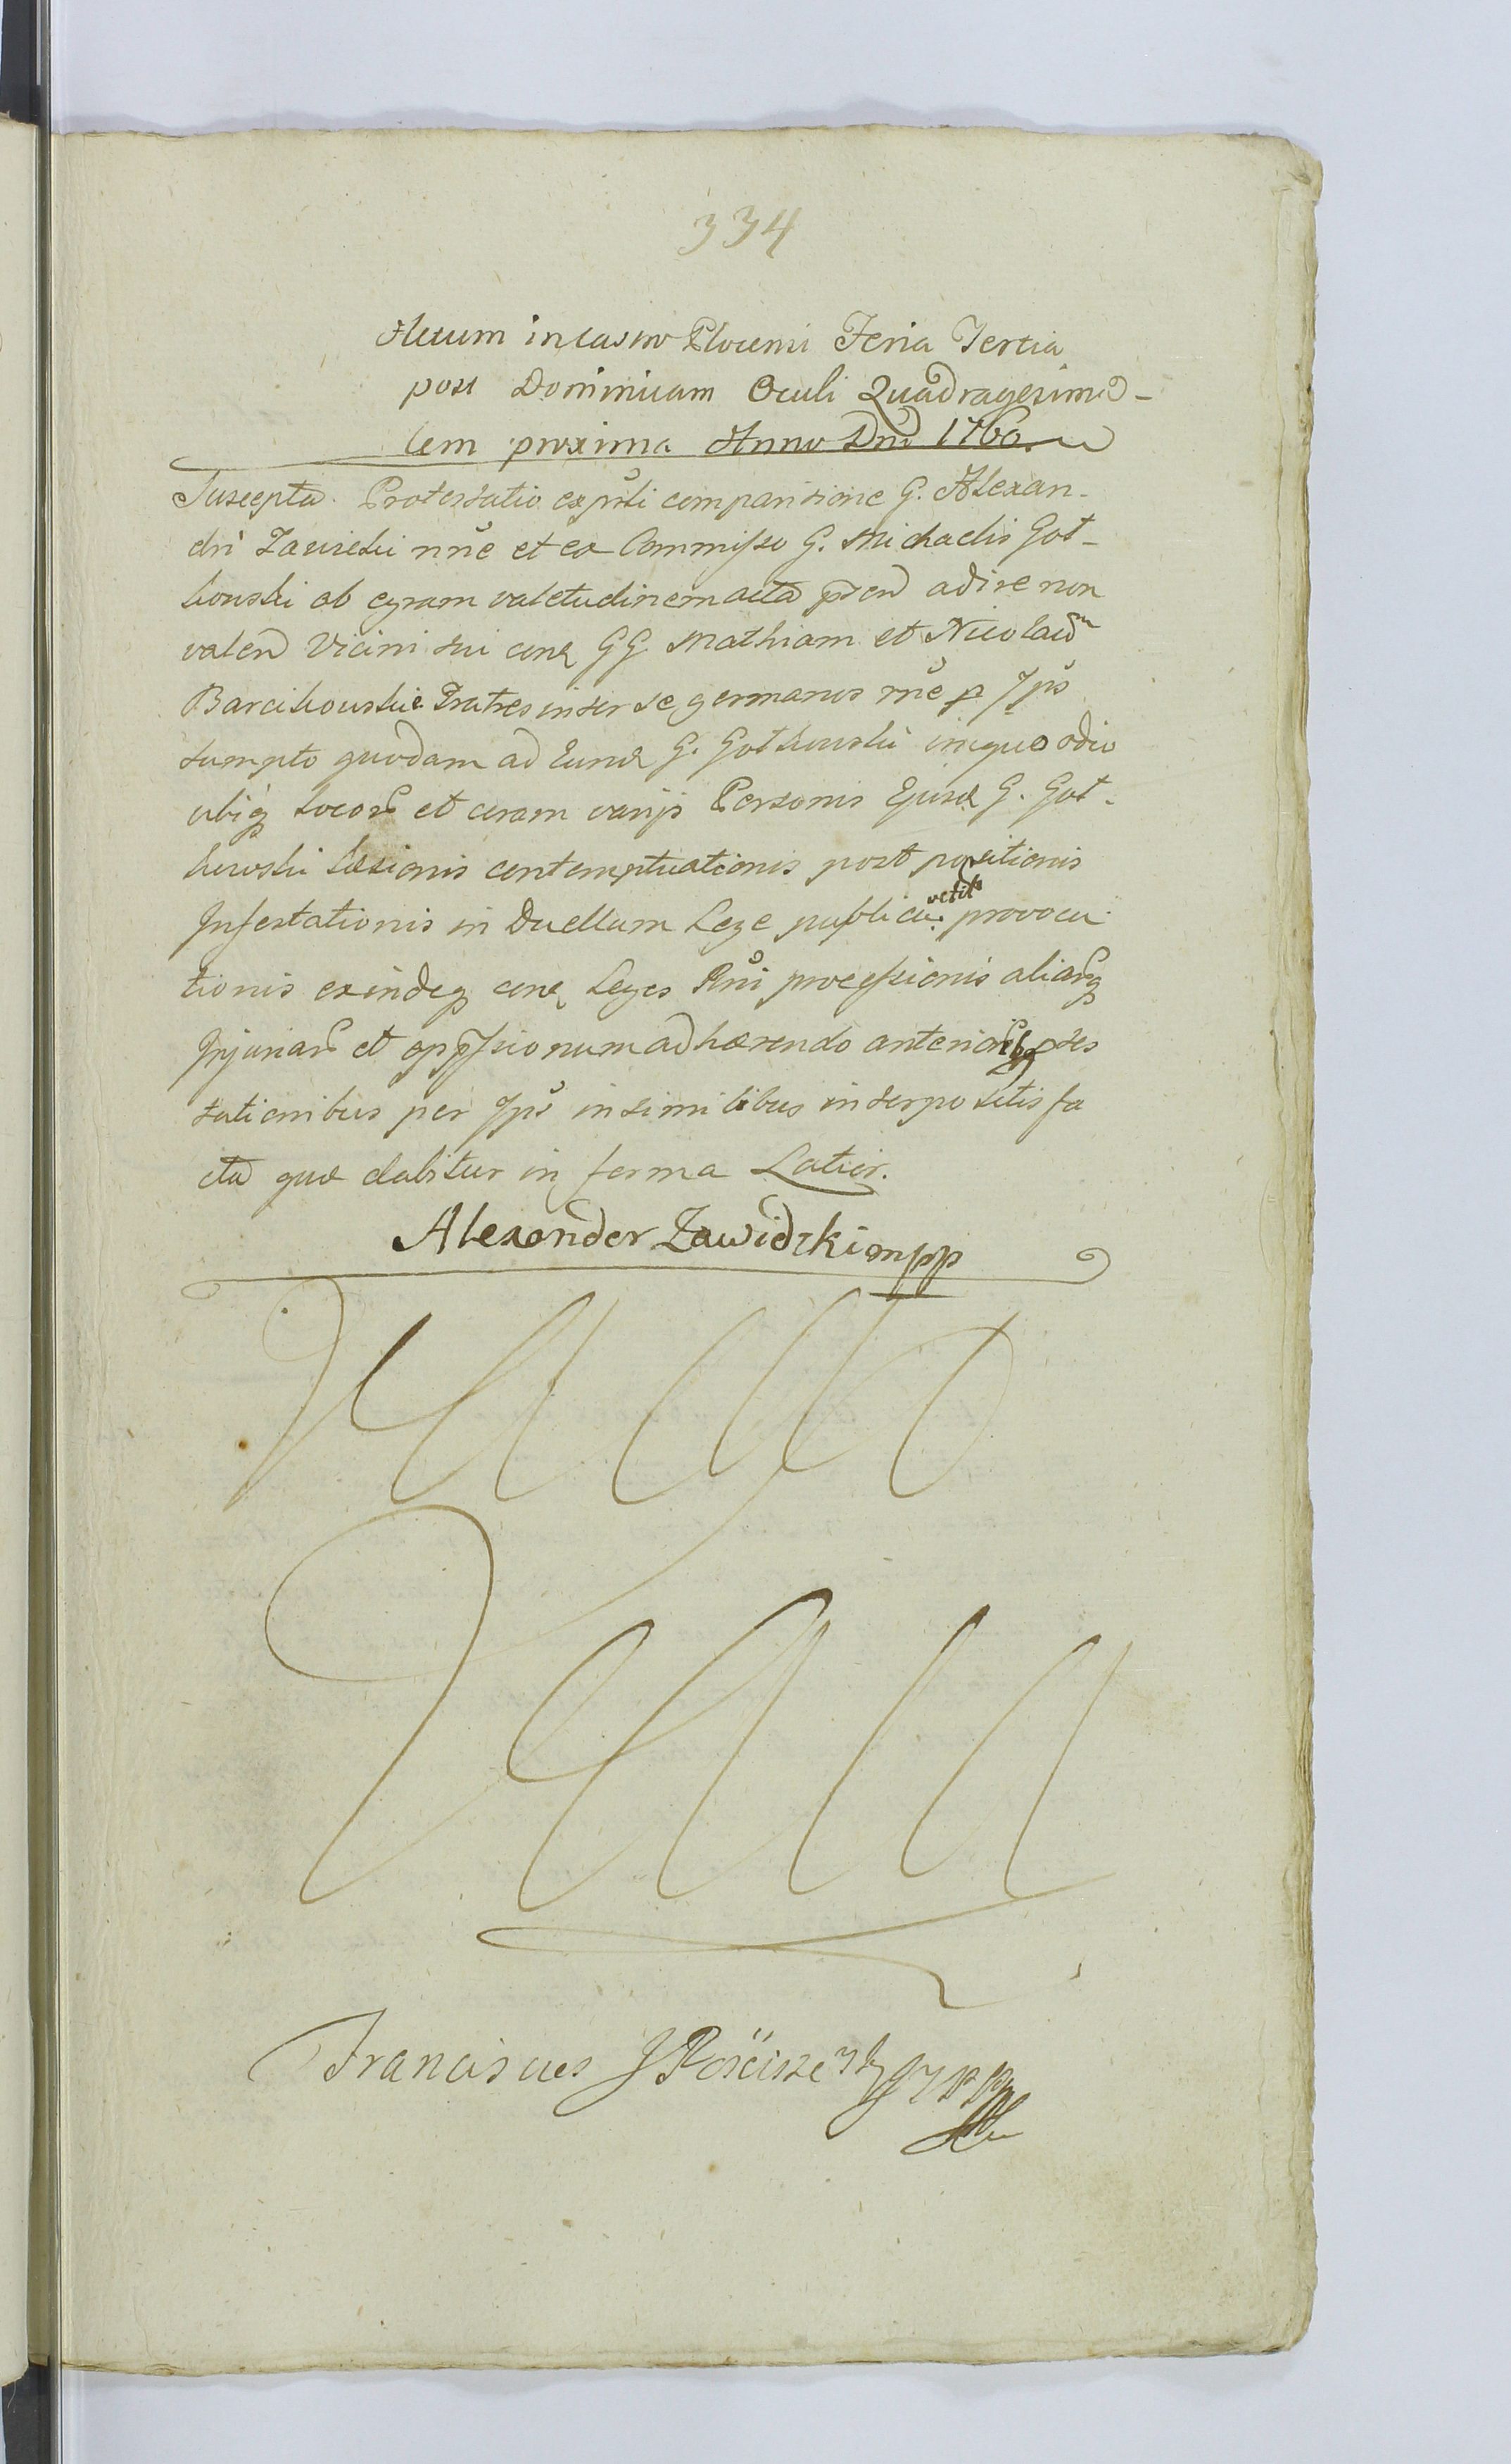 334
Actum in Castro Plocensi Feria Tertia
post Dominicam Oculi Quadragesima-
lem proxima Anno Dni 1760
Suscepta Protestatio ex psti comparitione G. Alexan-
dri Zawieski nne et ex Commisso G. Michaelis Got-
kowski ob egram valetudinem acta psen adire non
valen Vicini sui cona GG. Mathiam et Nicolaum
Barcikowskie Fratres inter se germanos rne p Ips
sumpto quodam ad Eund G. Gotkowski iniquo odio
ubiq locor et coram varijs Personis Ejusd G. Got-
kowski læsionis contemptuationis post positionis
Infestationis in Duellum Lege publica vetit provoca-
tionis exindeq cona Leges Rni processionis aliarq
Injuriar et oppssionum adhærendo anteriorib ptes
tationibus per Ips in similibus interpositis fa
cta quæ dabitur in forma Latior.
Alexander Zawidzki mpp
Franciscus J